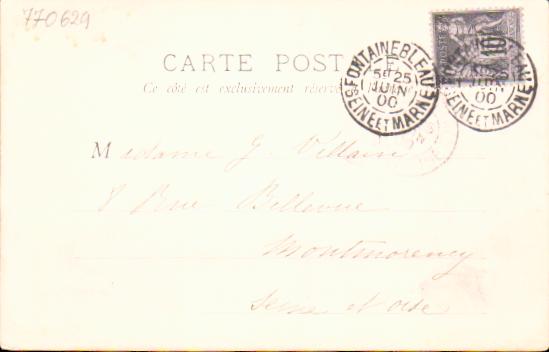 770629
CARTE POSTALE
Ce côté est exclusivement réservé
FONTAINEBLEAU
5E 25
JUIN
00
SEINE ET MARNE
10
00
SEINE ET MARNE
Madame J. Villain
8 Rue Bellevue
Montmorency
Seine et Oise